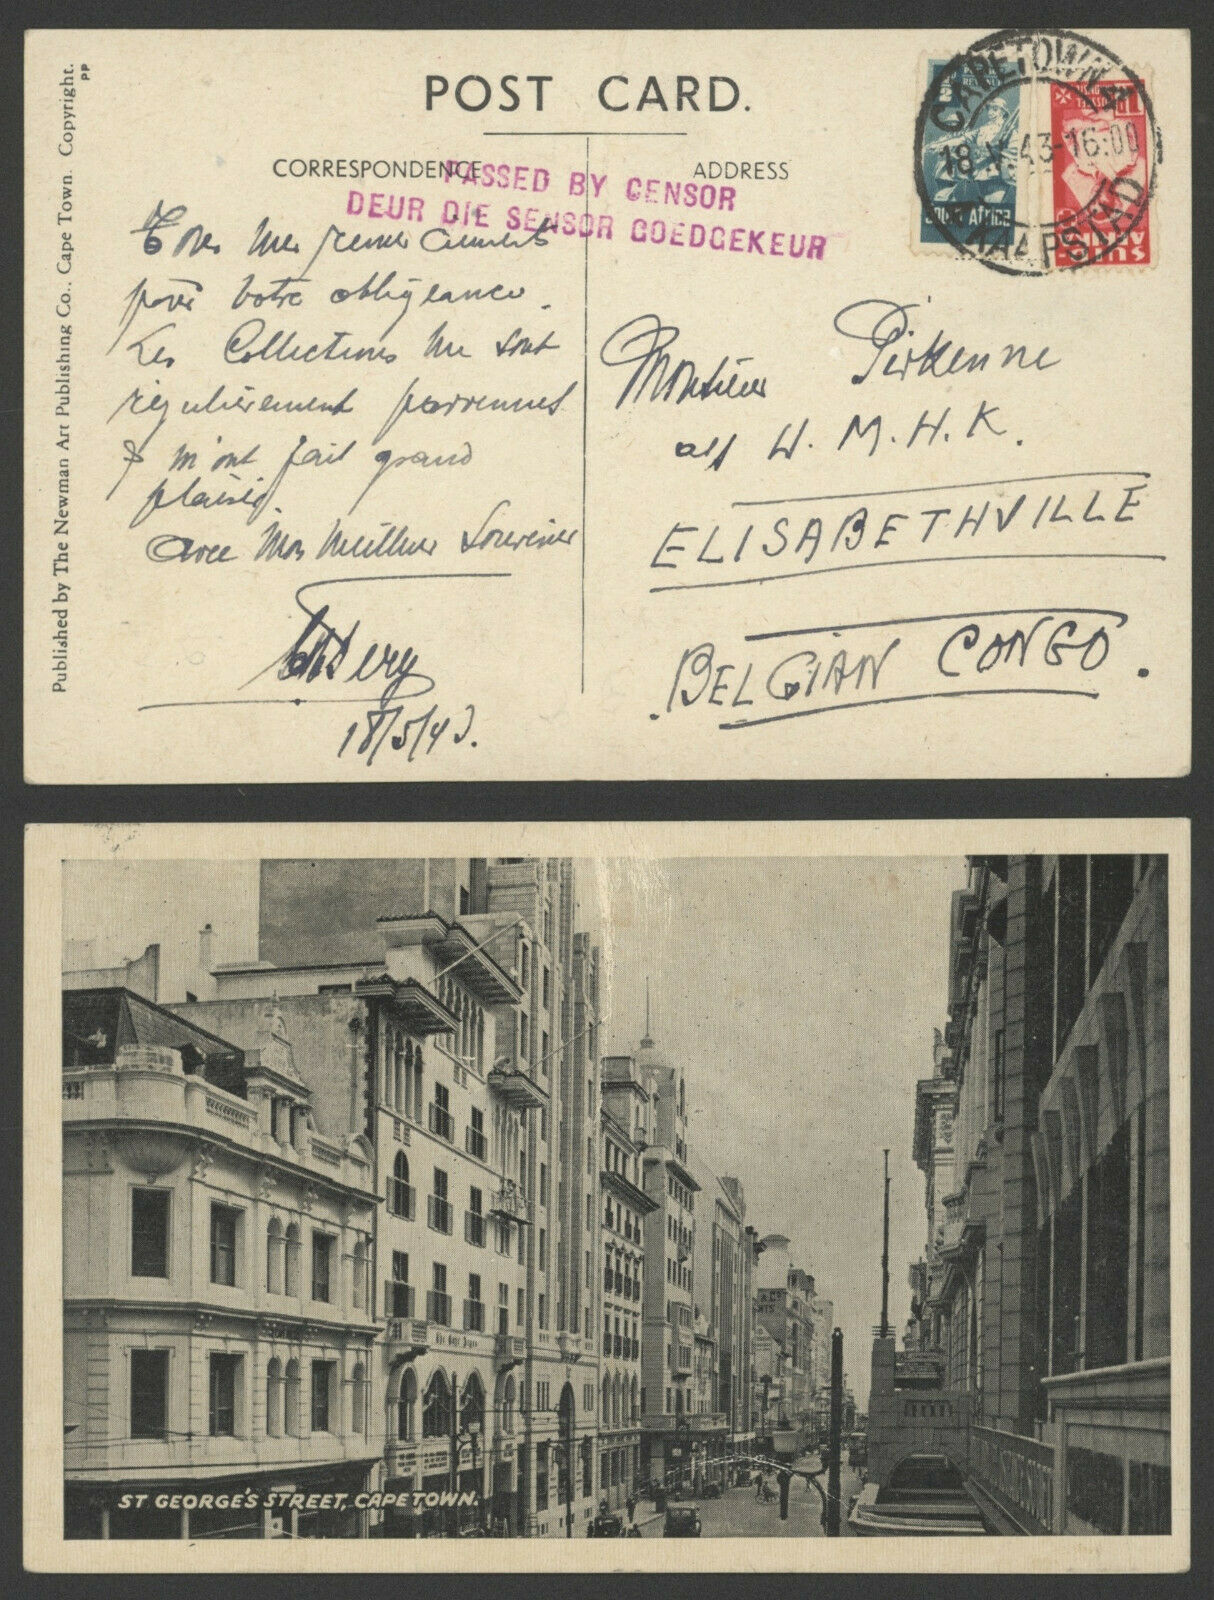 POST CARD.
CORRESPONDENCE
ADDRESS
PASSED BY CENSOR
DEUR DIE SENSOR GOEDGEKEUR
CAPETOWN
18 V 43-16:00
KAAPSTAD
SOUTH AFRICA
1D
Published by The Newman Art Publishing Co., Cape Town. Copyright.
PP
Tous mes remerciements
pour votre obligeance.
Les Collections me sont
régulièrement parvenues
& m'ont fait grand
plaisir.
avec mon meilleur souvenir
18/5/43.
Monsieur Pirkenne
a/s U. M. H. K.
ELISABETHVILLE
BELGIAN CONGO.
ST GEORGE'S STREET, CAPE TOWN.